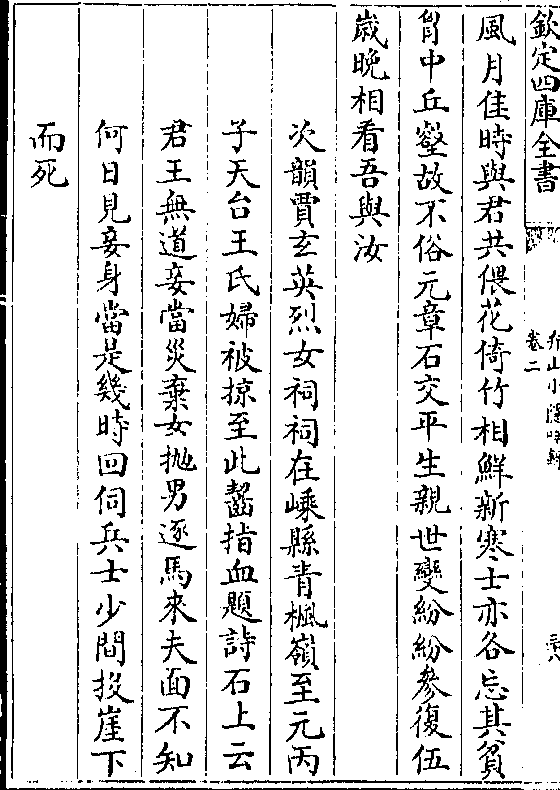 欽定四庫全書
卷二
風月佳時與君共偎花倚竹相鮮新寒士亦各忘其貧
胷中丘壑故不俗元章石交平生親世變紛紛參復伍
歲晚相看吾與汝
次韻賈玄英烈女祠祠在嵊縣青楓嶺至元丙
子天台王氏婦被掠至此齧指血題詩石上云
君王無道妾當災棄女抛男逐馬來夫面不知
何日見妾身當是幾時回伺兵士少間投崖下
而死